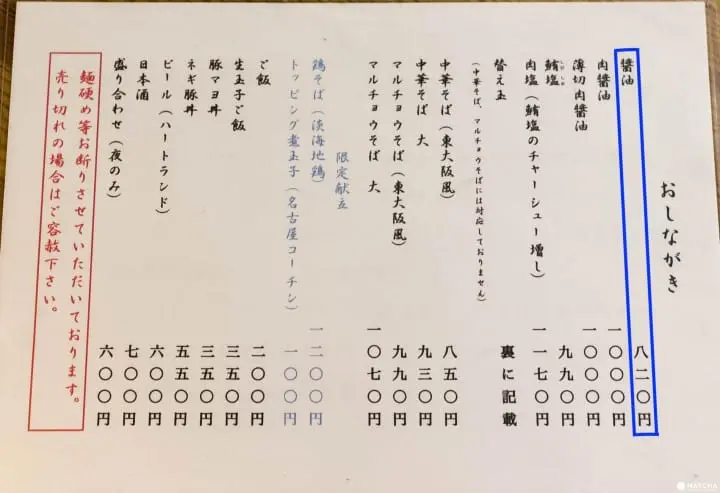 おしながき
醤油 八二〇円
肉醤油 一〇〇〇円
薄切肉醤油 一〇〇〇円
鮪塩 九九〇円
肉塩(鮪塩のチャーシュー増し) 一一七〇円
替え玉 裏に記載
(中華そば、マルチョウそばには対応しておりません)
中華そば(東大阪風) 八五〇円
中華そば 大 九三〇円
マルチョウそば(東大阪風) 九九〇円
マルチョウそば 大 一〇七〇円
限定献立
鶏そば(淡海地鶏) 一二〇〇円
トッピング煮玉子(名古屋コーチン) 一〇〇円
ご飯 二〇〇円
生玉子ご飯 三五〇円
豚マヨ丼 三五〇円
ネギ豚丼 五五〇円
ビール(ハートランド) 六〇〇円
日本酒 七〇〇円
盛り合わせ(夜のみ) 六〇〇円
麺硬め等お断りさせていただいております。
売り切れの場合はご容赦下さい。
MATCHA